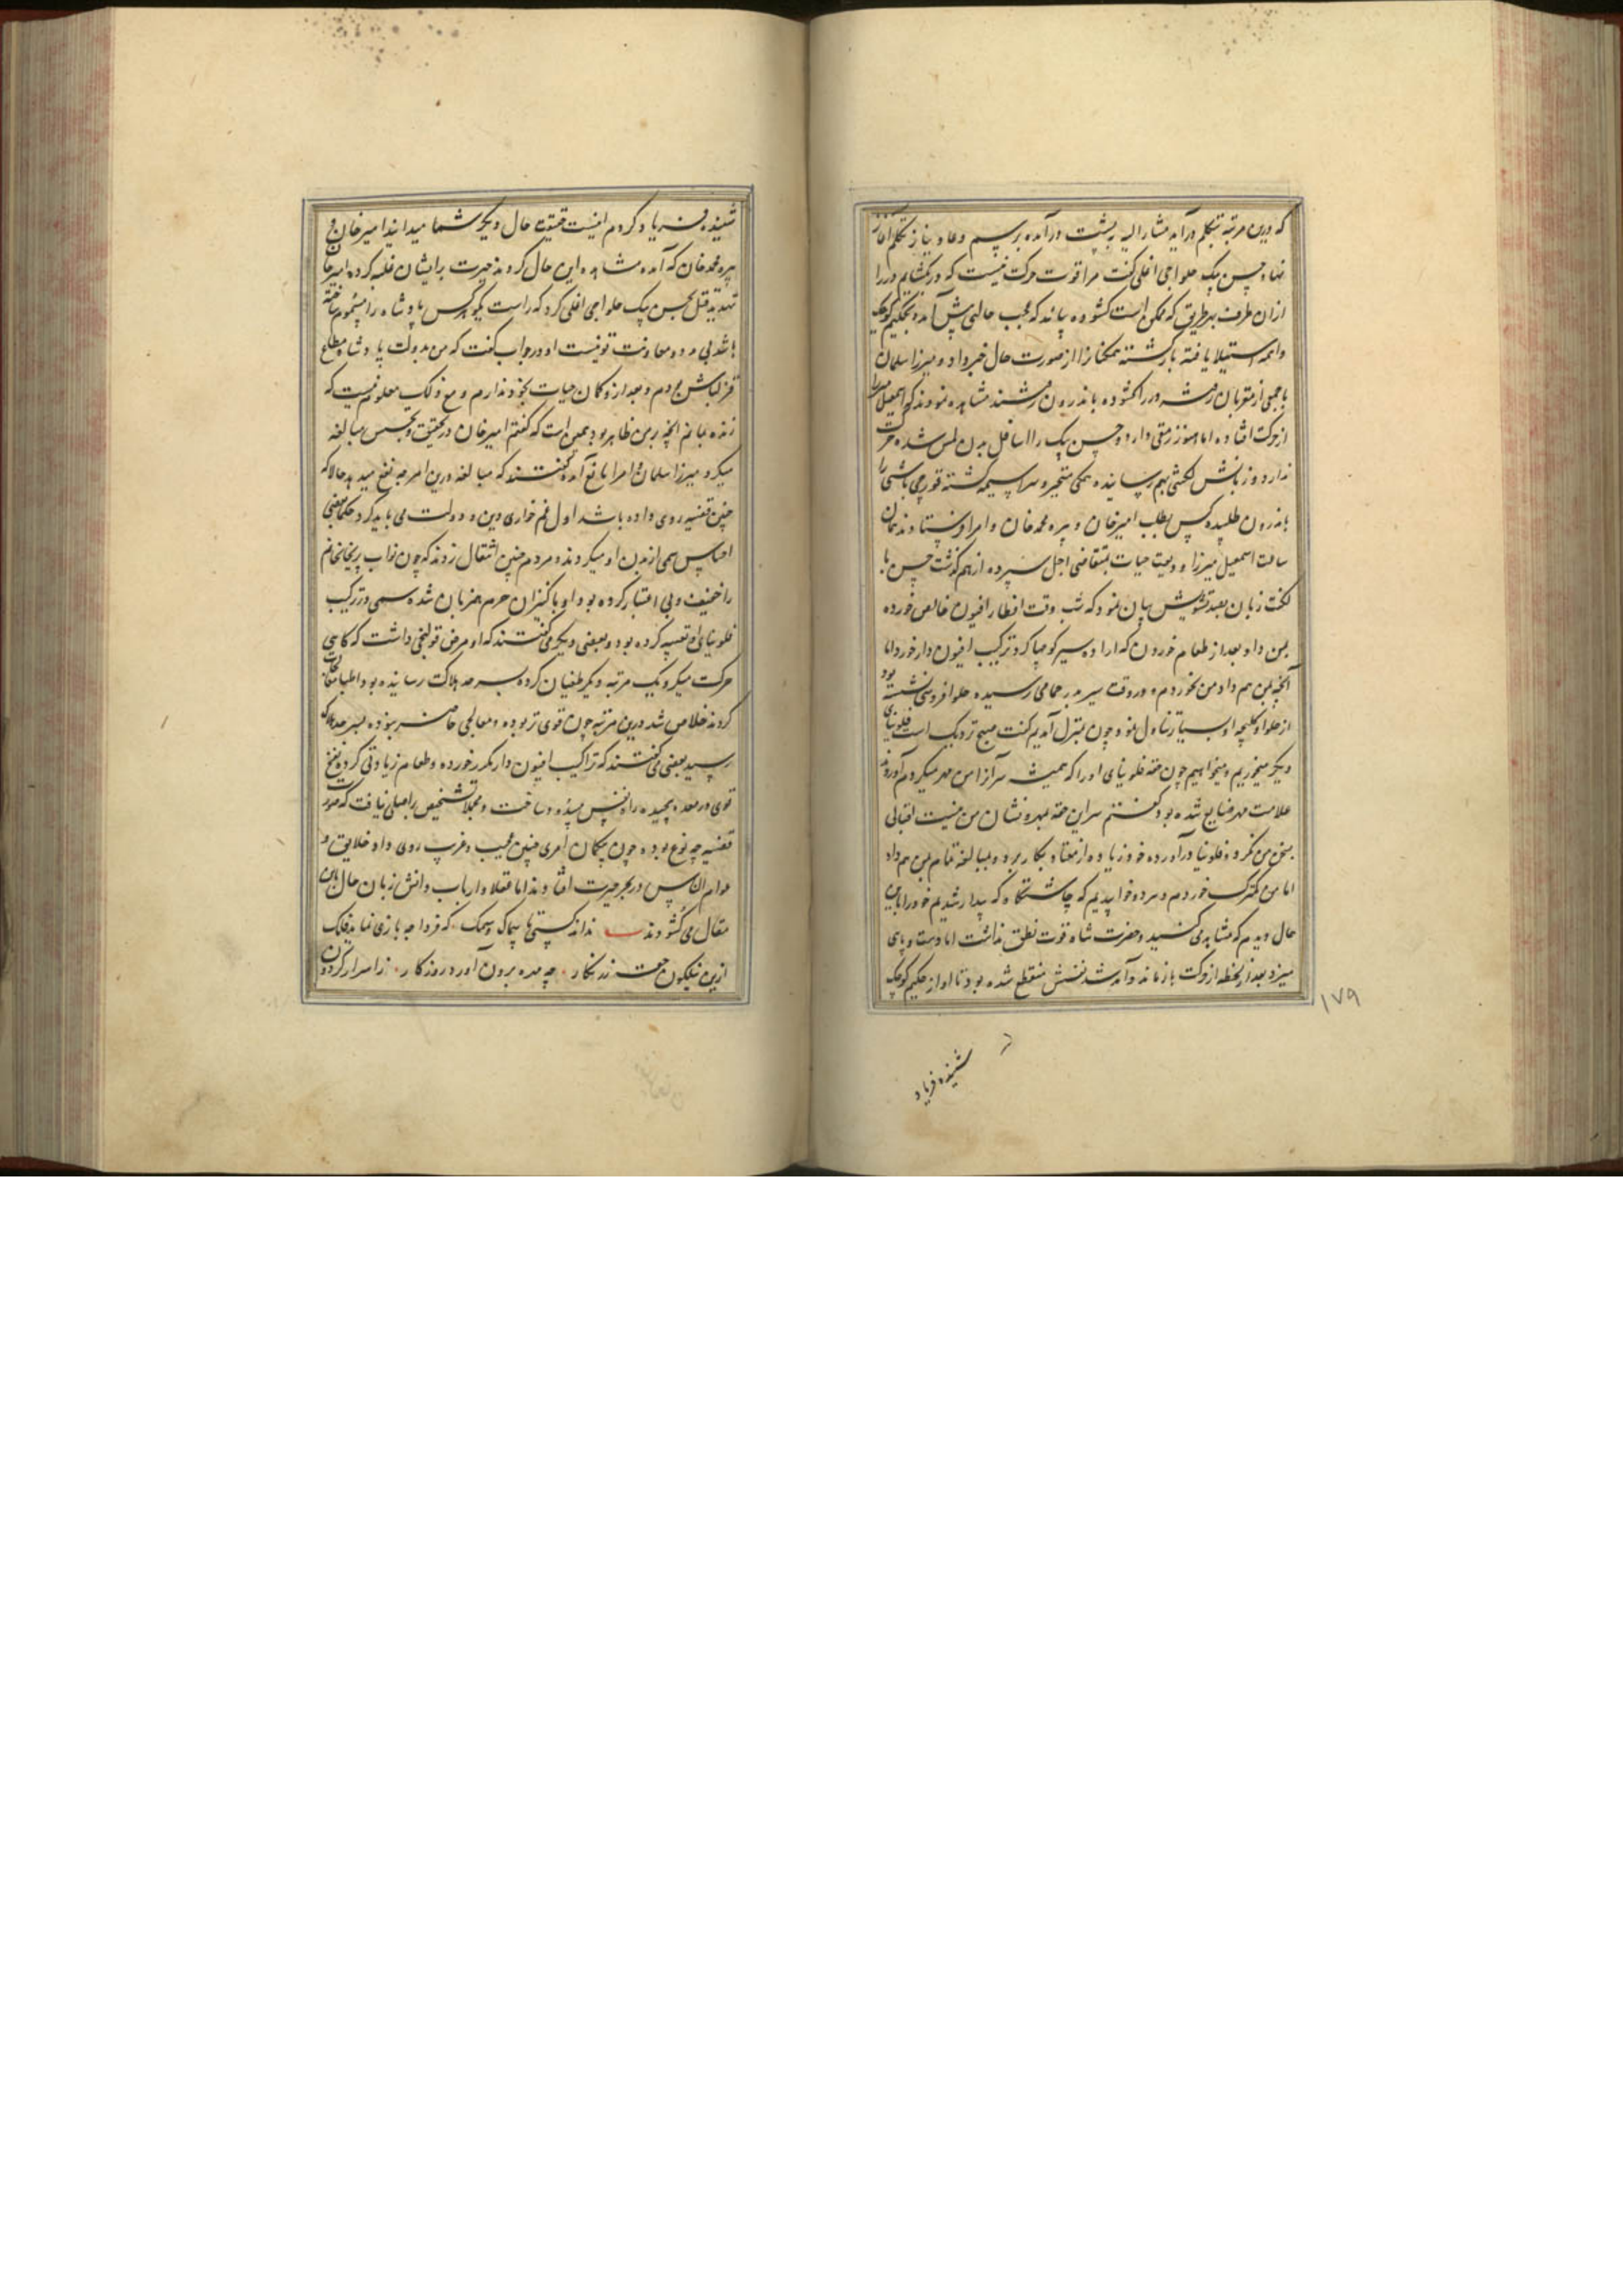 که درین مرتبه بتکلم درآید مشار الیه به پشت در آمده برسم دعا و نیاز تکلم آغاز
نهاد حسن بیک حلواجی اغلی گفت مرا قوت حرکت نیست که در بگشایم در را
ازان طرف بهر طریق که ممکن است گشوده بیایند که عجب حالتی پیش آمده بحکیم کوچک
واهمه استیلا یافته بازگشته همگنانرا از صورت حال خبر داد و میرزا سلمان
با جمعی از مقربان رفته در را گشوده باندرون رفتند مشاهده نمودند که اسمعیل میرزا
از حرکت افتاده اما هنوز رمقی دارد و حسن بیک را اسافل بدن لمس شده حرکت
ندارد و زبانش لکنتی بهم رسانیده همگی متحیر و سراسیمه گشته قورچی باشی را
باندرون طلبیده کس بطلب امیر خان و پیره محمد خان و امرا فرستادند همان
ساعت اسمعیل میرزا ودیعت حیات بمتقاضی اجل سپرده از هم گذشت حسن با
لکنت زبان بعد تشویش بیان نمود که شب وقت افطار افیون خالص خورده
بمن داد و بعد از طعام خوردن که اراده سیر کوچها کرد ترکیب افیون دار خورد اما
آنچه بمن هم داد من نخوردم و در وقت سیر بدر حمامی رسیده حلوا فروشی نشسته بود
از حلوا و کلیچه او بسیار تناول نمود چون بمنزل آمدیم گفت صبح نزدیک است فلونیای
دیگر میخوریم و میخوابیم چون حقه فلونیای او را که همیشه سر آنرا من مهر میکردم آوردند
علامت مهر ضایع شده بود گفتم سر این حقه بمهر و نشان من نیست اقبالی
بسخن من نکرد و فلونیا درآورده خود زیاده از معتاد بکار برد و بمبالغه تمام بمن هم داد
اما من کمترک خوردم و سر ده خوابیدیم که چاشتگاه که بیدار شدیم خود را باین
حال دیدم که مشاهده می کنید و حضرت شاه قوت نطق نداشت اما دست و پای
میزد بعد از لحظه از حرکت باز ماند و آمد شد نفسش منقطع شده بود تا آواز حکیم کوچک
۱۷۹
شنیده فریاد
شنیده فریاد کردم اینست حقیقت حال دیگر شما میدانید امیر خان و
پیره محمد خان که آمده مشاهده این حال کردند حیرت بر ایشان غلبه کرده امیر خان
تهدید قتل بحسن بیک حلواجی اغلی کرد که راست بگو هر کس پادشاه را مسموم ساخته
باشد بی مدد و معاونت تو نیست او در جواب گفت که من بدولت پادشاه مطاع
قزلباش بودم و بعد از او گمان حیات بخود ندارم و مع ذلک معلوم نیست که
زنده بمانم آنچه بر من ظاهر بود همین است که گفتم امیر خان در تحقیق و تجسس مبالغه
میکرد میرزا سلمان و امرا مانع آمده گفتند که مبالغه درین امر چه نفع میدهد حالا که
چنین قضیه روی داده باشد اول غم خواری دین و دولت می باید کرد حکما بعضی
احساس سمی از بدن او میکردند و مردم چنین انتقال زدند که چون نواب پریخانخانم
را خفیف و بی اعتبار کرده بود او با کنیزان حرم همزبان شده سمی در ترکیب
فلونیای او تعبیه کرده بود و بعضی دیگر می گفتند که او مرض قولنجی داشت که گاهی
حرکت میکرد یک مرتبه دیگر طغیان کرده بسرحد هلاکت رسانیده بود اطبا معالجات
کردند خلاص شد درین مرتبه چون قوی تر بوده و معالجی حاضر نبوده بسرحد هلاک
رسید بعضی می گفتند که تراکیب افیون دار مکرر خورده و طعام زیادتی کرده نفخ
قوی در معده پیچیده راه نفس مسدود ساخت و مجملا تشخیص را اصلی نیافت که صورت
قضیه چه نوع بوده چون بیگمان امری چنین عجیب و غریب روی داد خلایق و
عوام الناس در بحر حیرت افتادند اما عقلا و ارباب دانش زبان حال باین
مقال می گشودند نداند کسی تا سماک و سمک که فردا چه بازی نماید فلک
ازین نیلگون حقه زرنگار چه مهره برون آورد روزگار ز اسرار گردون